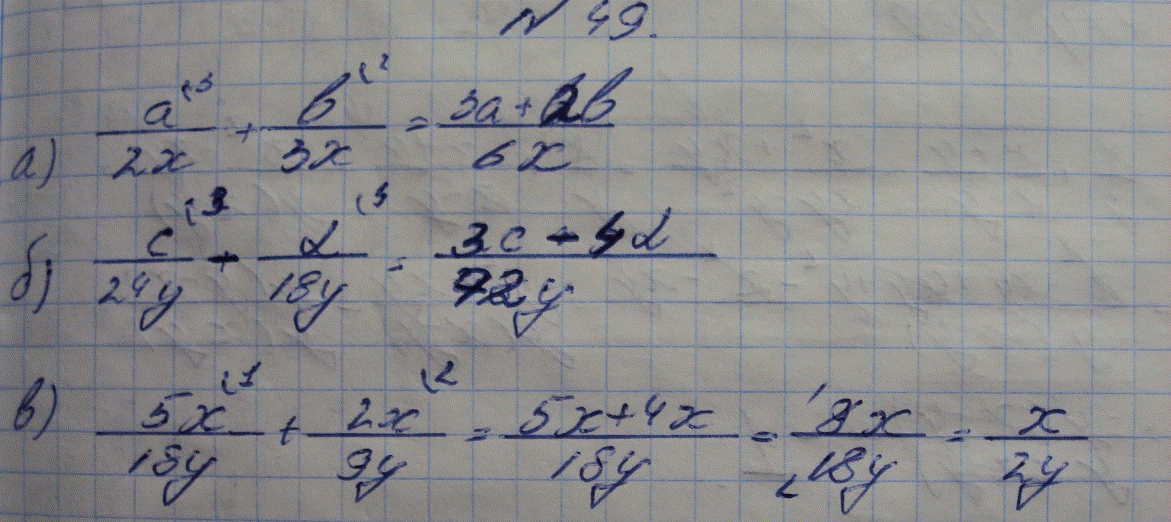 N 49.
а) a⁽³/2x + b⁽²/3x = 3a+2b/6x
б) c⁽³/24y - d⁽³/18y = 3c-4d/72y
в) 5x⁽¹/18y + 2x⁽²/9y = 5x+4x/18y = 8x/18y = x/2y